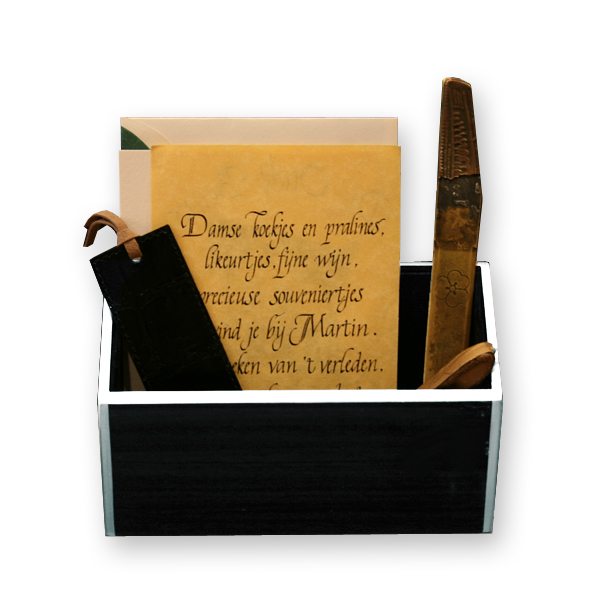 Damse koekjes en pralines,
likeurtjes, fijne wijn,
precieuse souveniertjes
ind je bij Martin.
eken van 't verleden.